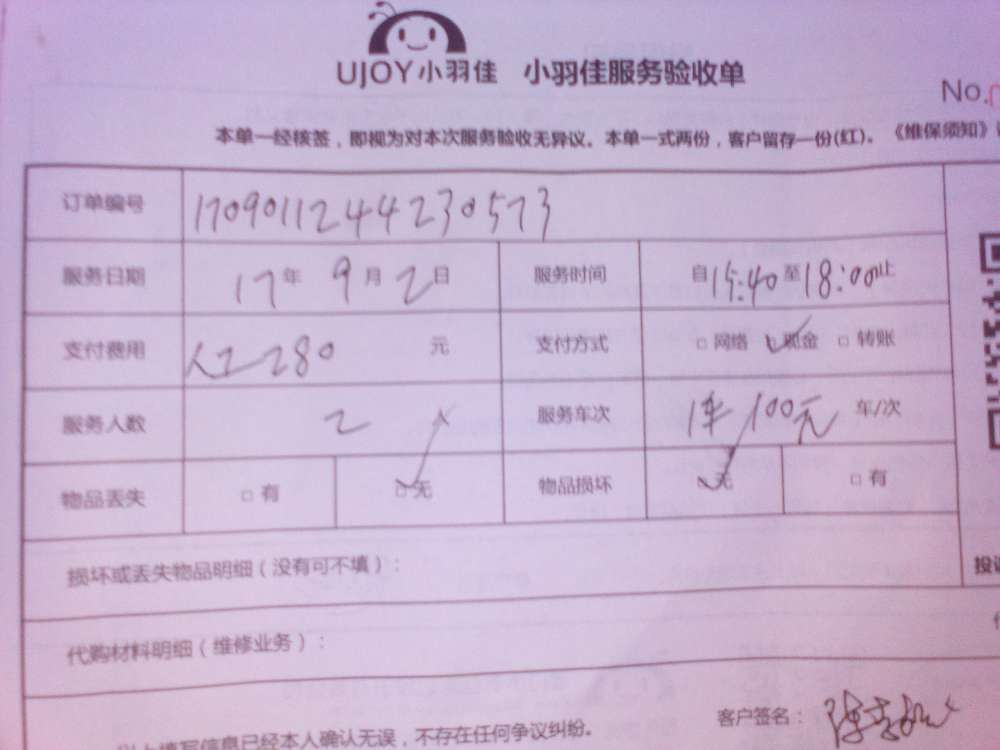 UJOY小羽佳 小羽佳服务验收单
No.
本单一经核签，即视为对本次服务验收无异议。本单一式两份，客户留存一份(红)。《维保须知》
订单编号 1709011244230573
服务日期 17年 9月 2日 服务时间 自15:40至18:00止
支付费用 人工280 元 支付方式 □ 网络 ☑ 现金 □ 转账
服务人数 2 服务车次 1车100元 车/次
物品丢失 □ 有 ☑ 无 物品损坏 ☑ 无 □ 有
损坏或丢失物品明细（没有可不填）：
投
代购材料明细（维修业务）：
客户签名：
以上填写信息已经本人确认无误，不存在任何争议纠纷。